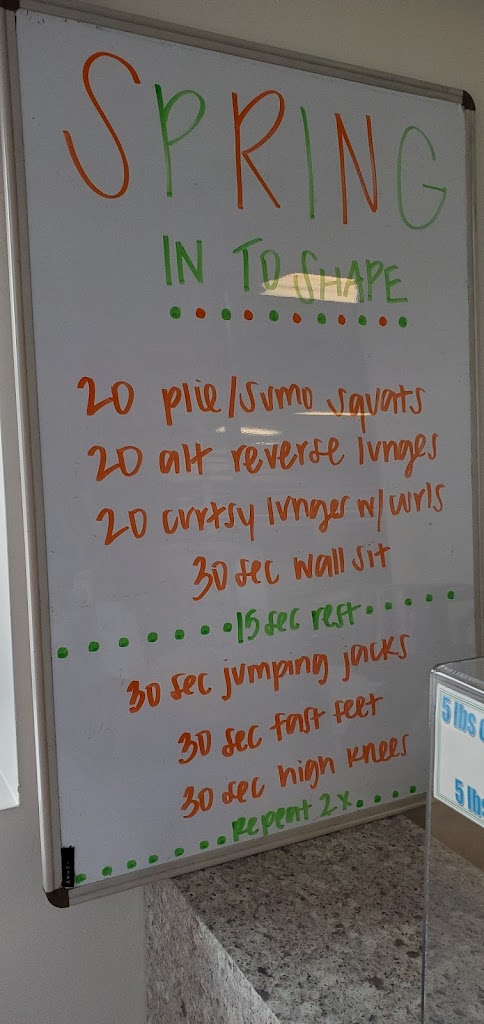 SPRING
IN TO SHAPE
20 plie/sumo squats
20 alt reverse lunges
20 curtsy lunges w/ curls
30 sec wall sit
15 sec rest
30 sec jumping jacks
30 sec fast feet
30 sec high knees
repeat 2x
5 lbs
5 lbs